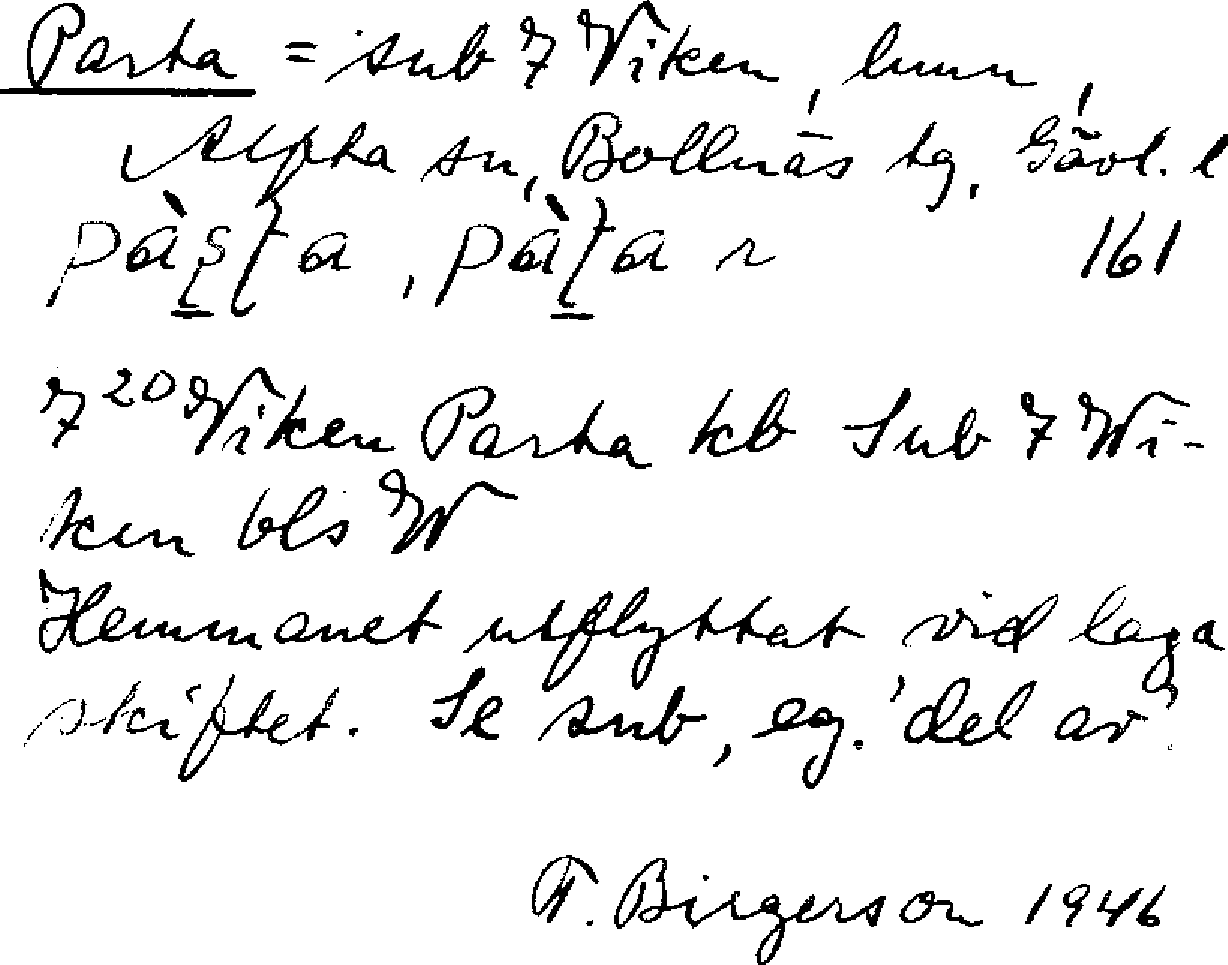 Parta = sub 7 Viken, hmn,
Alfta sn, Bollnäs tg, Gävl. l
pàʂʈa, pàʈa 161
7²⁰ Viken Parta kb Sub 7 Wi-
ken bls W
Hemmanet utflyttat vid laga
skiftet. Se sub, eg. 'del av'.
F. Birgerson 1946